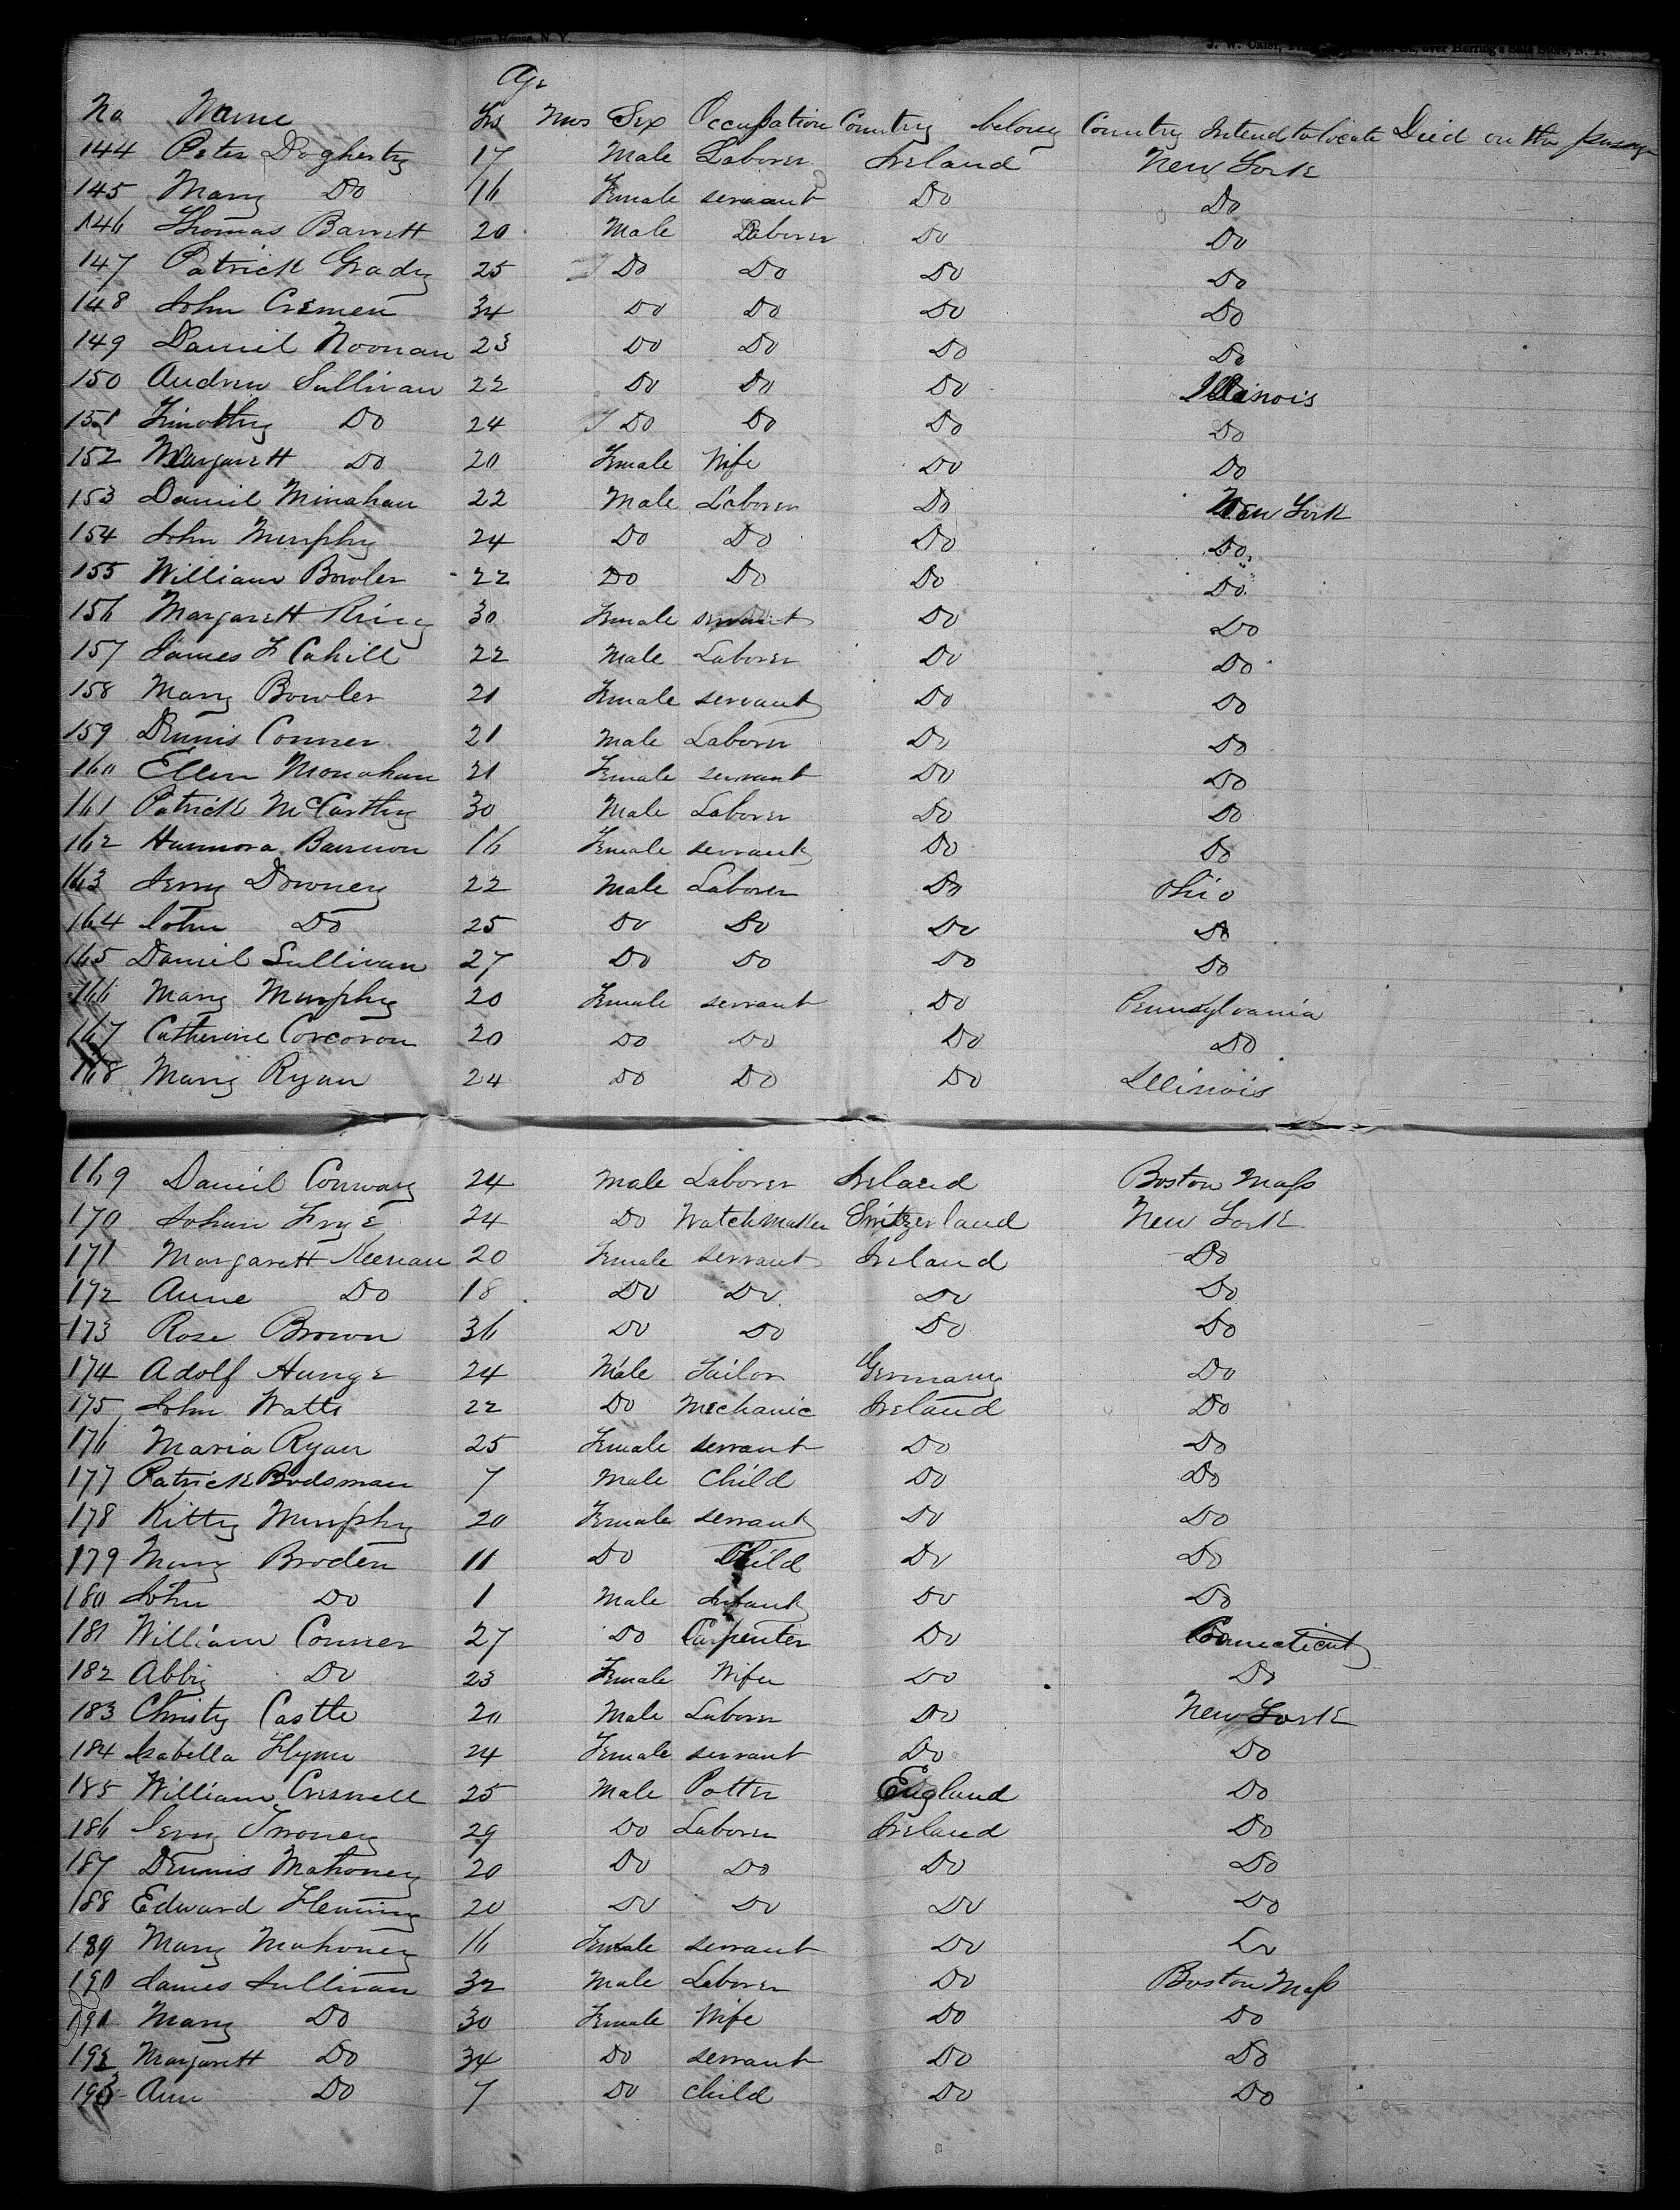 Custom-House, N. Y.
over Herring's Safe Store, N. Y.
Age
No Name Yrs Mos Sex Occupation Country belong Country Intend to locate Died on the passage
144 Peter Dogherty 17 Male Laborer Ireland New York
145 Mary Do 16 Female servant Do Do
146 Thomas Barrett 20 Male Laborer Do Do
147 Patrick Grady 25 Do Do Do Do
148 John Cremen 34 Do Do Do Do
149 Daniel Noonan 23 Do Do Do Do
150 Andrew Sullivan 22 Do Do Do Illinois
151 Timothy Do 24 Do Do Do Do
152 Margarett Do 20 Female Wife Do Do
153 Daniel Minahan 22 Male Laborer Do New York
154 John Murphy 24 Do Do Do Do
155 William Bowler 22 Do Do Do Do
156 Margarett Ring 30 Female servant Do Do
157 James F Cahill 22 Male Laborer Do Do
158 Mary Bowler 21 Female servant Do Do
159 Dennis Conner 21 Male Laborer Do Do
160 Ellen Monahan 21 Female servant Do Do
161 Patrick McCarthy 30 Male Laborer Do Do
162 Hannora Bannon 16 Female servant Do Do
163 Jerry Downey 22 Male Laborer Do Ohio
164 John Do 25 Do Do Do Do
165 Daniel Sullivan 27 Do Do Do Do
166 Mary Murphy 20 Female servant Do Pennsylvania
167 Catherine Corcoran 20 Do Do Do Do
168 Mary Ryan 24 Do Do Do Illinois
169 Daniel Conway 24 Male Laborer Ireland Boston Mass
170 Johan Frye 24 Do Watchmaker Switzerland New York
171 Margarett Keenan 20 Female servant Ireland Do
172 Anne Do 18 Do Do Do Do
173 Rose Brown 36 Do Do Do Do
174 Adolf Hunge 24 Male Tailor Germany Do
175 John Watts 22 Do Mechanic Ireland Do
176 Maria Ryan 25 Female servant Do Do
177 Patrick Bodsman 7 Male Child Do Do
178 Kitty Murphy 20 Female servant Do Do
179 Mary Broden 11 Do Child Do Do
180 John Do 1 Male Infant Do Do
181 William Conner 27 Do Carpenter Do Connecticut
182 Abby Do 23 Female Wife Do Do
183 Christy Castle 20 Male Laborer Do New York
184 Isabella Flynn 24 Female servant Do Do
185 William Creswell 25 Male Potter England Do
186 Jerry Twoney 29 Do Laborer Ireland Do
187 Dennis Mahoney 20 Do Do Do Do
188 Edward Fleming 20 Do Do Do Do
189 Mary Mahoney 16 Female servant Do Do
190 James Sullivan 32 Male Laborer Do Boston Mass
191 Mary Do 30 Female Wife Do Do
192 Margarett Do 34 Do servant Do Do
193 Ann Do 7 Do child Do Do